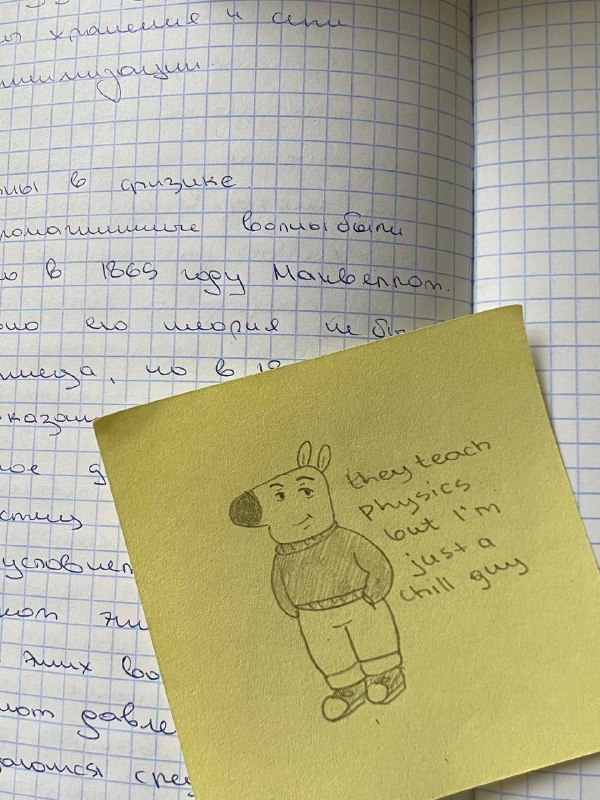 хранения и сети
ны в физике
ромагнитные волны были
о в 1865 году Максвеллом.
но его теория не бы
, но в 18
оказан
ное д
условлен
этих во
ют давле
they teach
physics
but I'm
just a
chill guy